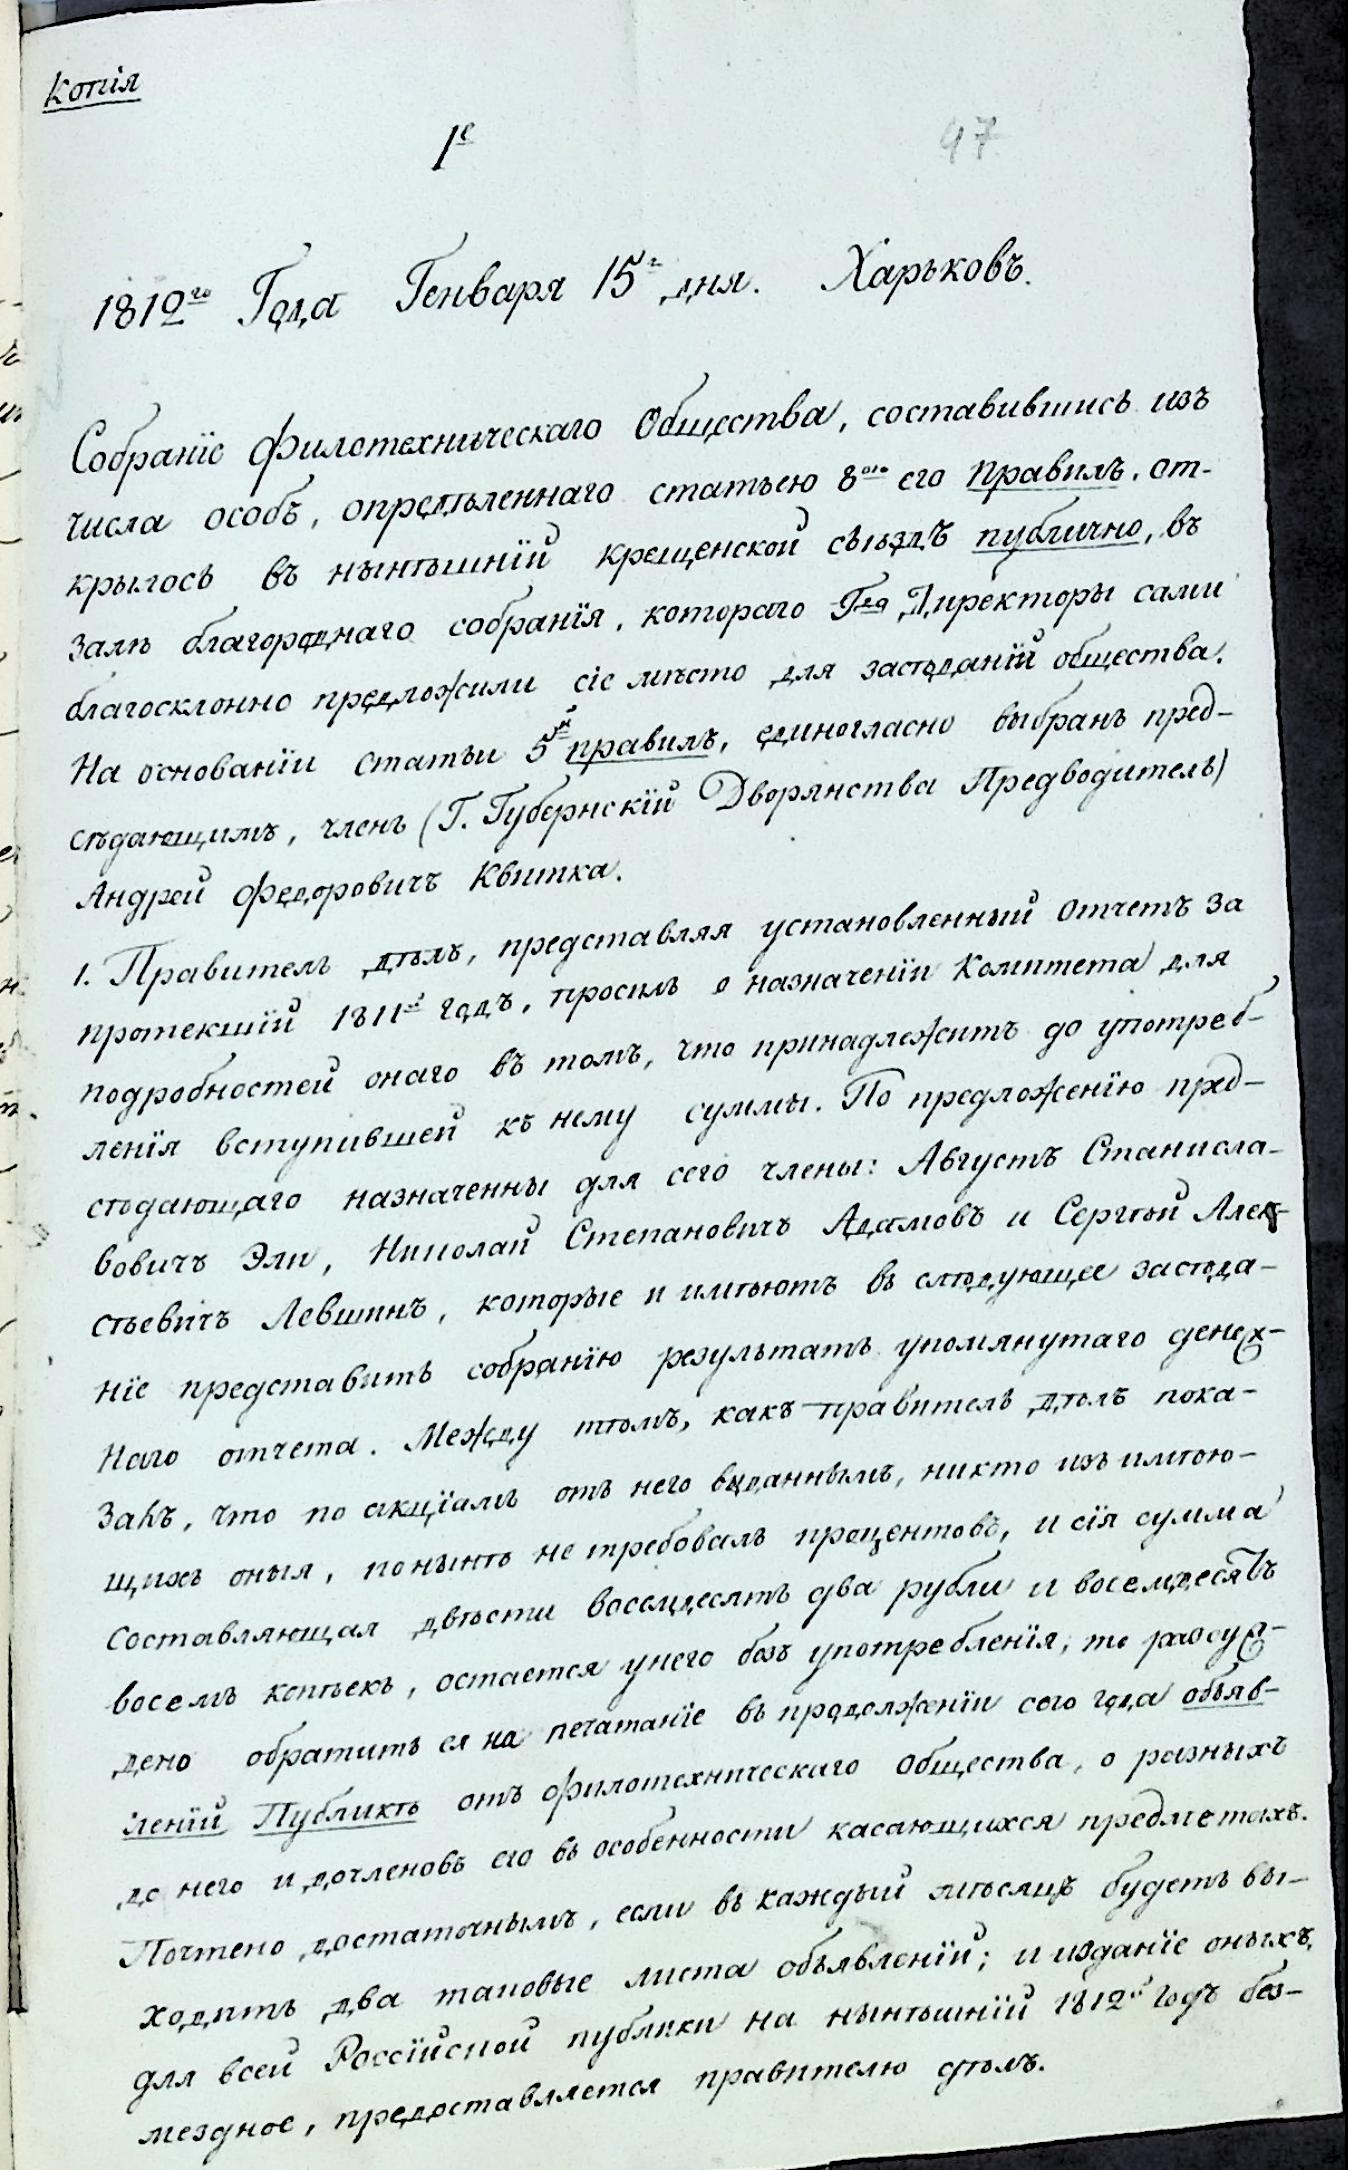 Копія
1е
97
1812го Года Генваря 15г дня. Харьковъ.
Собраніе Филотехническаго Общества, составившись изъ
числа особъ, опредѣленнаго статьею 8ою его правилъ, от-
крылось въ нынѣшній крещенской съѣздъ публично, въ
залѣ благороднаго собранія, котораго Гда Директоры сами
благосклонно предложили сіе мѣсто для засѣданій общества.
На основаніи статьи 5й правилъ, единогласно выбранъ пред-
сѣдающимъ, членъ (Г. Губернскій Дворянства Предводитель)
Андрей Федоровичъ Квитка.
1. Правитель дѣлъ, представляя установленный отчетъ за
протекшій 1811й годъ, просилъ о назначеніи Комитета для
подробностей онаго въ томъ, что принадлежитъ до употреб-
ленія вступившей къ нему суммы. По предложенію пред-
сѣдающаго назначенны для сего члены: Августъ Станисла-
вовичъ Эли, Николай Степановичъ Адамовъ и Сергѣй Алек-
сѣевичъ Левшинъ, которые и имѣютъ въ слѣдующее засѣда-
ніе представить собранію результатъ упомянутаго денеж-
наго отчета. Между тѣмъ, какъ правитель дѣлъ пока-
залъ, что по акціямъ отъ него выданнымъ, никто изъ имѣю-
щихъ оныя, понынѣ не требовалъ процентовъ, и сія сумма
составляющая двѣсти восемдесятъ два рубли и восемдесятъ
восемъ копѣекъ, остается у него безъ употребленія; то разсуж-
дено обратить ея на печатаніе въ продолженіи сего года объяв-
леній Публикѣ отъ Филотехническаго Общества, о разныхъ
до него и до членовъ его въ особенности касающихся предметахъ.
Почтено достаточнымъ, если въ каждый мѣсяцъ будетъ вы-
ходить два таковые листа объявленій; и изданіе оныхъ,
для всей Россійской публики на нынѣшній 1812й годъ без-
мездное, предоставляется правителю дѣлъ.